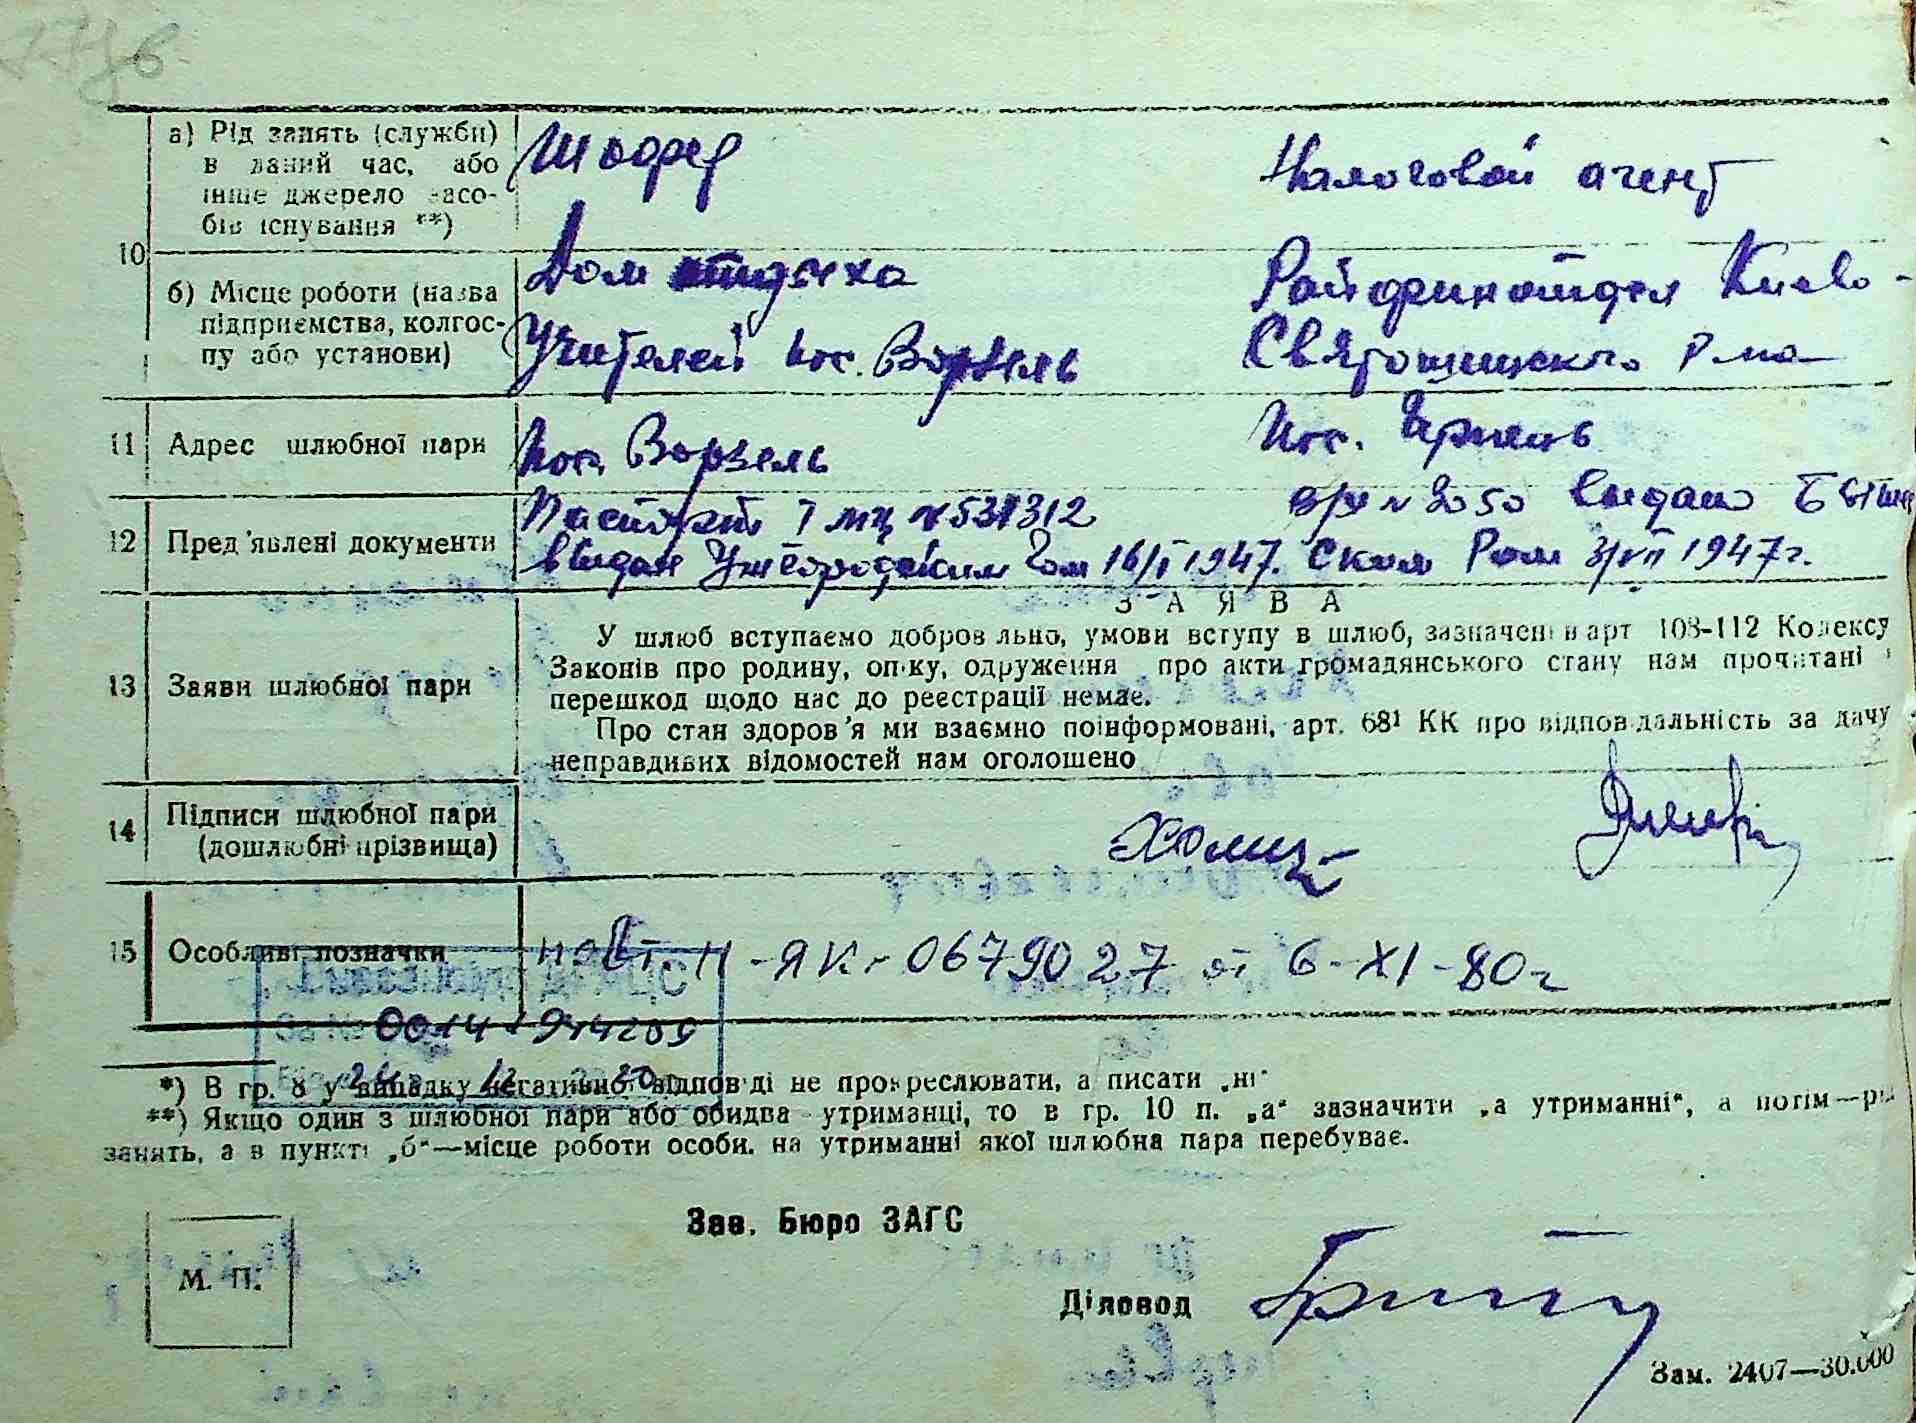 10
а) Рід занять (служби)
в даний час, або
інше джерело засо-
бів існування **)
Шофер
Налоговой агент
б) Місце роботи (назва
підприємства, колгос-
пу або установи)
Дом отдыха
Учителей пос. Ворзель
Райфинотдел Киево-
Святошинского р-на
11
Адрес шлюбної пари
пос. Ворзель
пос. Ирпень
12
Пред'явлені документи
Паспорт І МЦ №
выдан Ужгородским Гом 16/І 1947.
№ 2050 выдано
ским Ром 3/VII 1947 г.
13
Заяви шлюбної пари
ЗАЯВА
У шлюб вступаємо добровільно, умови вступу в шлюб, зазначені в арт 108-112 Кодексу
Законів про родину, опіку, одруження про акти громадянського стану нам прочитані і
перешкод щодо нас до реєстрації немає.
Про стан здоров'я ми взаємно поінформовані, арт. 68¹ КК про відповідальність за дачу
неправдивих відомостей нам оголошено
14
Підписи шлюбної пари
(дошлюбні прізвища)
15
Особливі позначки
II-ЯК- 0679027 от 6-XI-80г
*) В гр. 8 у випадку негативної відповіді не прокреслювати, а писати „ні"
**) Якщо один з шлюбної пари або обидва - утриманці, то в гр. 10 п. „а" зазначити „а утриманні", а потім—рід
занять, а в пункті „б"—місце роботи особи, на утриманні якої шлюбна пара перебуває.
Зав. Бюро ЗАГС
М. П.
Діловод
Зам. 2407—30.000